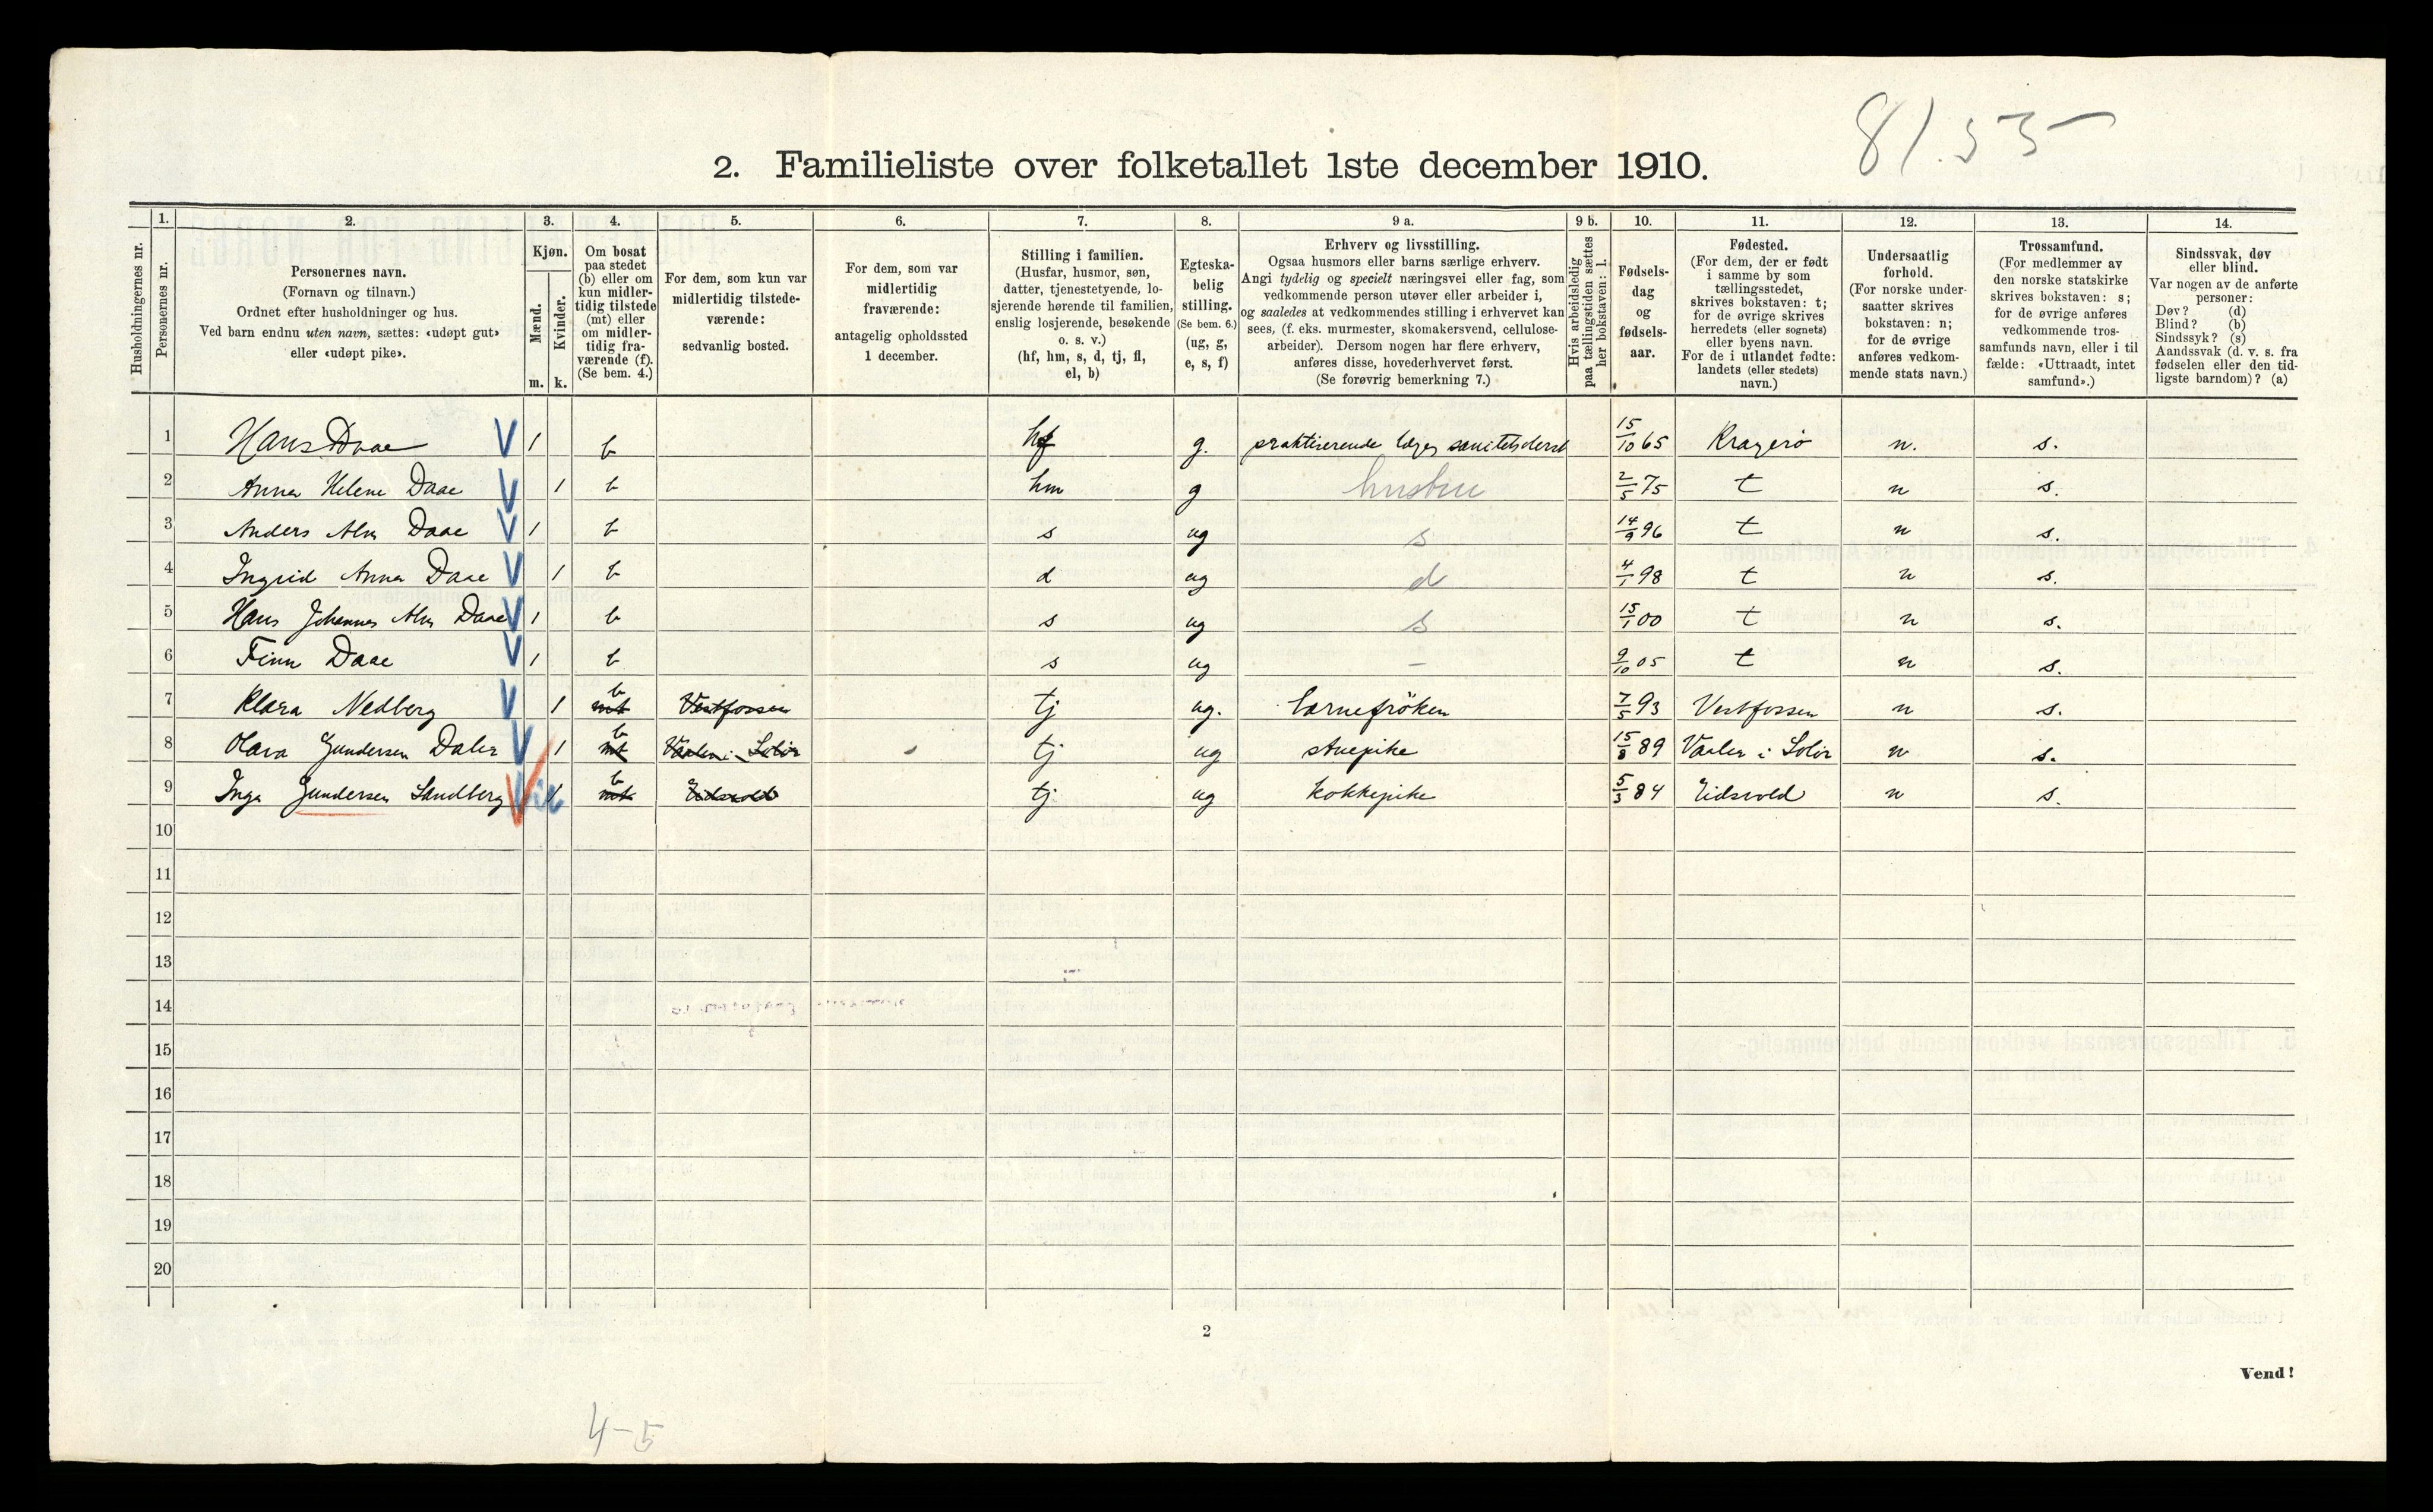 81.55
2. Familieliste over folketallet 1ste december 1910.
Husholdningernes nr.
1. Personernes nr.
2. Personernes navn.
(Fornavn og tilnavn.)
Ordnet efter husholdninger og hus.
Ved barn endnu uten navn, sættes: «udøpt gut»
eller «udøpt pike».
3. Kjøn.
Mænd. m.
Kvinder. k.
4. Om bosat
paa stedet
(b) eller om
kun midler-
tidig tilstede
(mt) eller
om midler-
tidig fra-
værende (f).
(Se bem. 4.)
5. For dem, som kun var
midlertidig tilstede-
værende:
sedvanlig bosted.
6. For dem, som var
midlertidig
fraværende:
antagelig opholdssted
1 december.
7. Stilling i familien.
(Husfar, husmor, søn,
datter, tjenestetyende, lo-
sjerende hørende til familien,
enslig losjerende, besøkende
o. s. v.)
(hf, hm, s, d, tj, fl,
el, b)
8. Egteska-
belig
stilling.
(Se bem. 6.)
(ug, g,
e, s, f)
9 a. Erhverv og livsstilling.
Ogsaa husmors eller barns særlige erhverv.
Angi tydelig og specielt næringsvei eller fag, som
vedkommende person utøver eller arbeider i,
og saaledes at vedkommendes stilling i erhvervet kan
sees, (f. eks. murmester, skomakersvend, cellulose-
arbeider). Dersom nogen har flere erhverv,
anføres disse, hovederhvervet først.
(Se forøvrig bemerkning 7.)
9 b. Hvis arbeidsledig
paa tællingstiden sættes
her bokstaven: l.
10. Fødsels-
dag
og
fødsels-
aar.
11. Fødested.
(For dem, der er født
i samme by som
tællingsstedet,
skrives bokstaven: t;
for de øvrige skrives
herredets (eller sognets)
eller byens navn.
For de i utlandet fødte:
landets (eller stedets)
navn.)
12. Undersaatlig
forhold.
(For norske under-
saatter skrives
bokstaven: n;
for de øvrige
anføres vedkom-
mende stats navn.)
13. Trossamfund.
(For medlemmer av
den norske statskirke
skrives bokstaven: s;
for de øvrige anføres
vedkommende tros-
samfunds navn, eller i til
fælde: «Uttraadt, intet
samfund».)
14. Sindssvak, døv
eller blind.
Var nogen av de anførte
personer:
Døv? (d)
Blind? (b)
Sindssyk? (s)
Aandssvak (d. v. s. fra
fødselen eller den tid-
ligste barndom)? (a)
1 Hans Daae V 1 b hf g. praktiserende læge, 15/10 65 Kragerö n. s.
2 Anna Helene Daae V 1 b hm g hustru 2/5 75 t n s.
3 Anders Alm Daae V 1 b s ug s 14/9 96 t n s.
4 Ingrid Anna Daae V 1 b d ug d 4/1 98 t n s.
5 Hans Johannes Alm Daae V 1 b s ug s 15/1 00 t n s.
6 Finn Daae V 1 b s ug – 9/10 05 t n s.
7 Klara Nedberg V 1 b mt Vestfossen tj ug. barnefröken 7/5 93 Vestfossen n s.
8 Olava Gundersen Daler V 1 b mt Vaaler i Solör tj ug stuepike 15/8 89 Vaaler i Solör n s.
9 Inga Gundersen Sandberg V 1 b mt Eidsvold tj ug kokkepike 5/3 84 Eidsvold n s.
10
11
12
13
14
15
16
17
18
19
20
2
Vend!
4-5